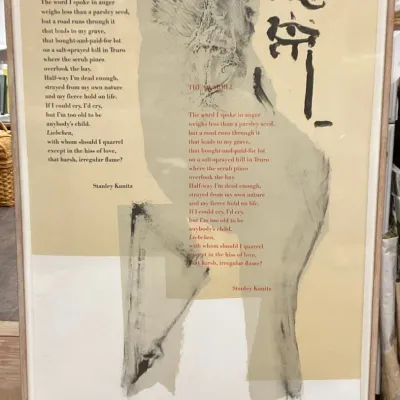 The word I spoke in anger
weighs less than a parsley seed,
but a road runs through it
that leads to my grave,
that bought-and-paid-for lot
on a salt-sprayed hill in Truro
where the scrub pines
overlook the bay.
Half-way I'm dead enough,
strayed from my own nature
and my fierce hold on life.
If I could cry, I'd cry,
but I'm too old to be
anybody's child.
Liebchen,
with whom should I quarrel
except in the hiss of love,
that harsh, irregular flame?
Stanley Kunitz
THE QUARREL
The word I spoke in anger
weighs less than a parsley seed,
but a road runs through it
that leads to my grave,
that bought-and-paid-for lot
on a salt-sprayed hill in Truro
where the scrub pines
overlook the bay.
Half-way I'm dead enough,
strayed from my own nature
and my fierce hold on life.
If I could cry, I'd cry,
but I'm too old to be
anybody's child.
Liebchen,
with whom should I quarrel
except in the hiss of love,
that harsh, irregular flame?
Stanley Kunitz